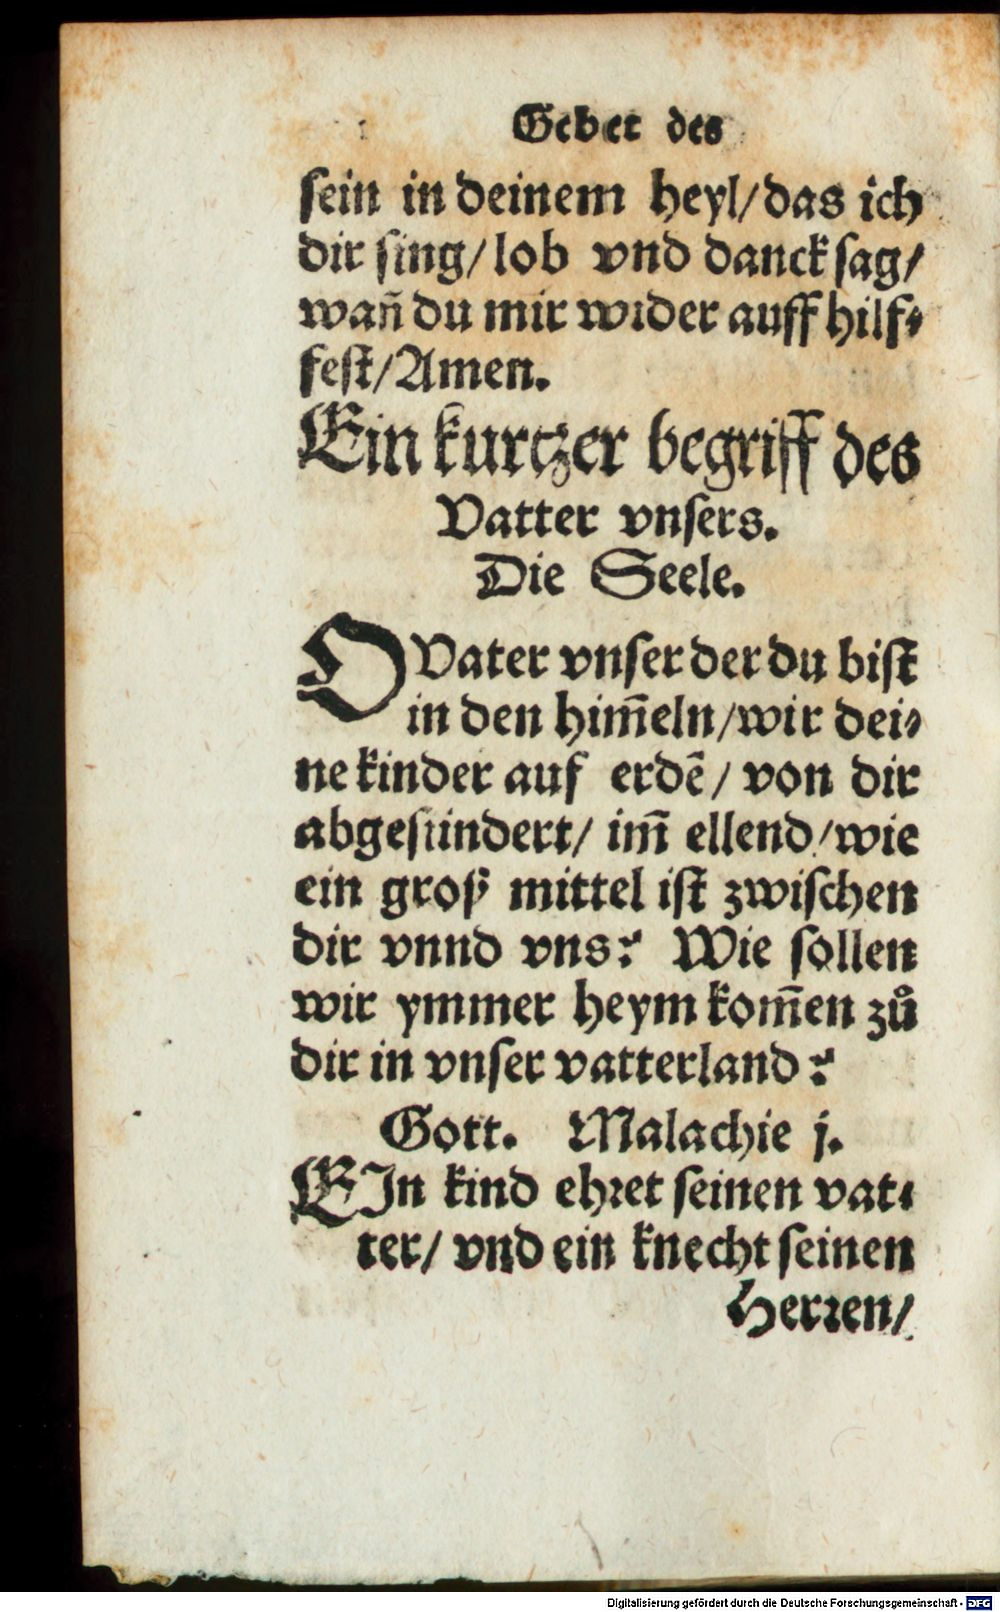 Gebet des
sein in deinem heyl/das ich
dir sing/lob vnd danck sag/
wañ du mir wider auff hilf⸗
fest/Amen.
Ein kurtzer begriff des
Vatter vnsers.
Die Seele.
O Vater vnser der du bist
in den him̃eln/wir dei⸗
ne kinder auf erdẽ/ von dir
abgesündert/ im̃ ellend/wie
ein groß mittel ist zwischen
dir vnnd vns? Wie sollen
wir ymmer heym kom̃en zů
dir in vnser vatterland?
Gott. Malachie j.
EJn kind ehret seinen vat⸗
ter/ vnd ein knecht seinen
Herren/
Digitalisierung gefördert durch die Deutsche Forschungsgemeinschaft - DFG